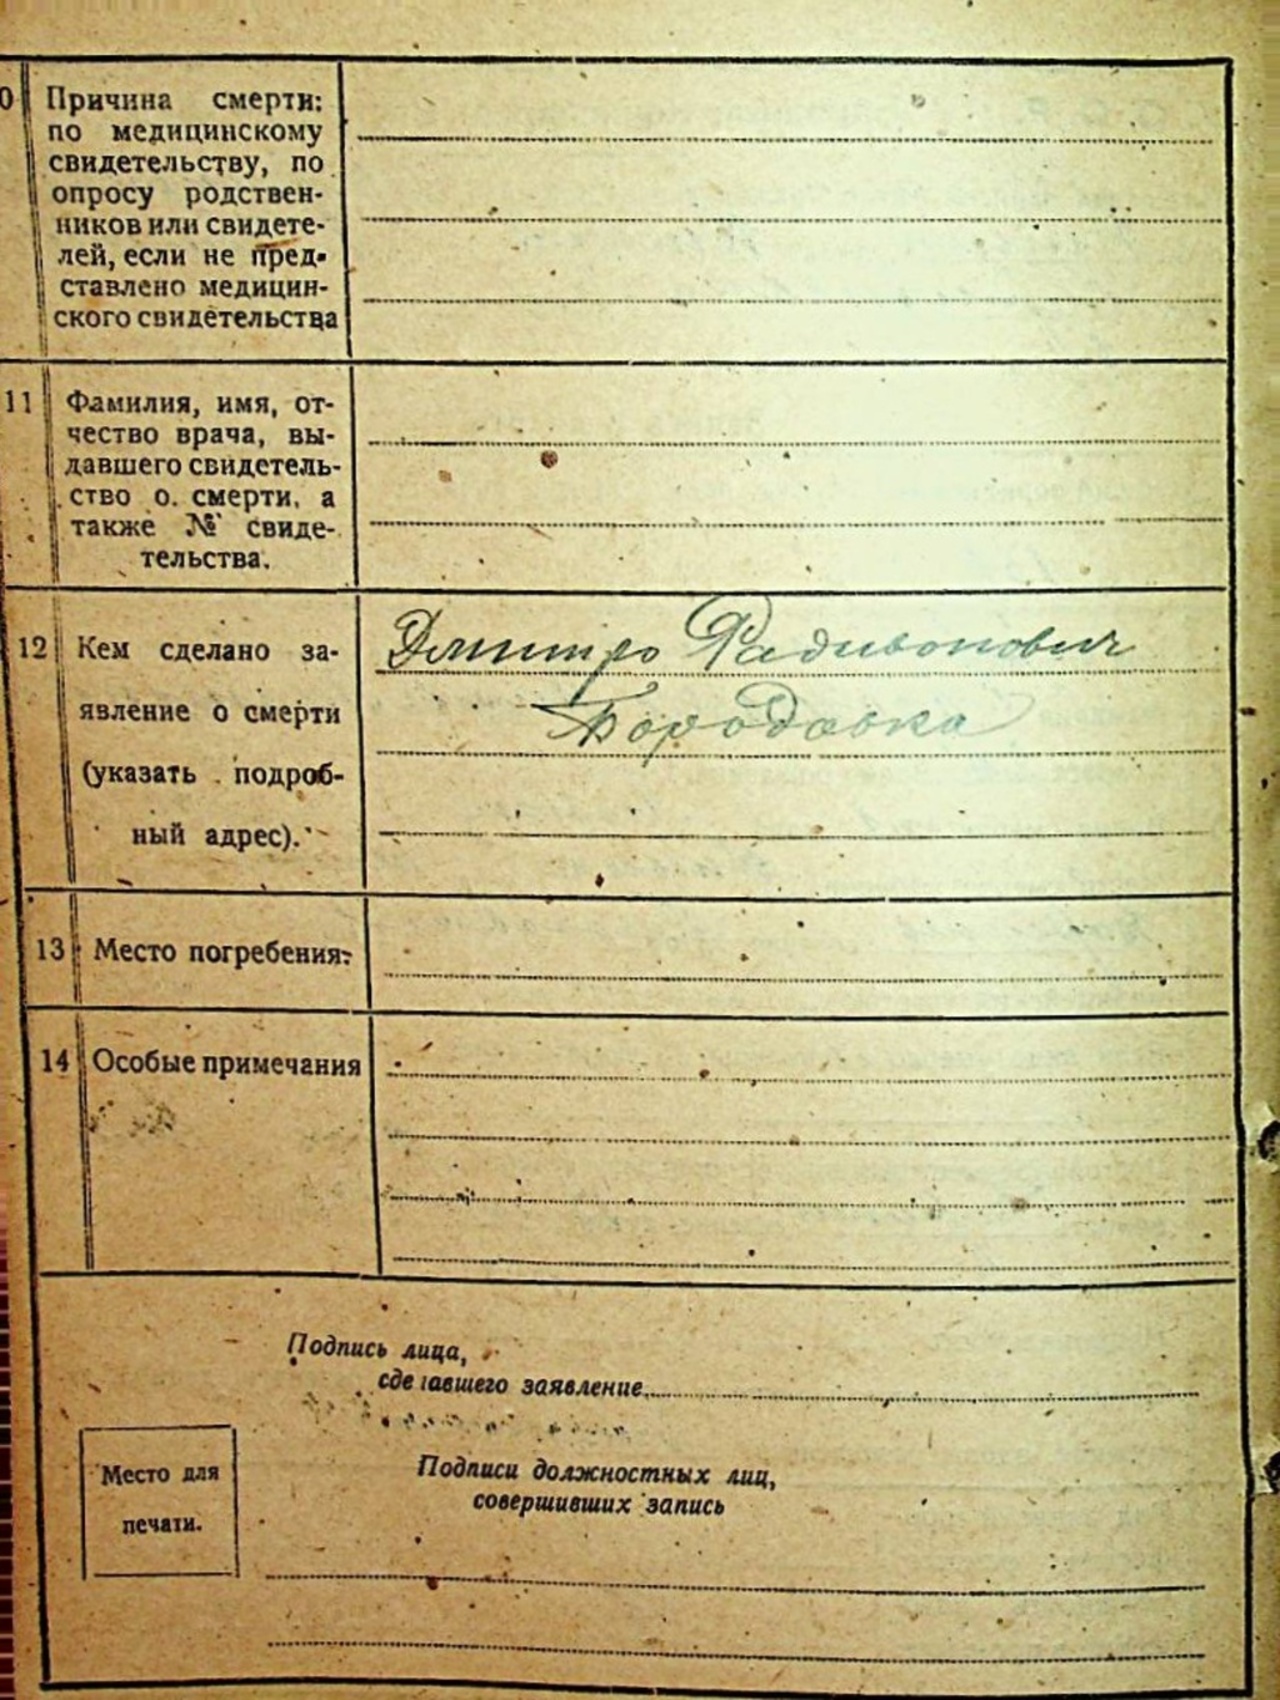 0 Причина смерти:
по медицинскому
свидетельству, по
опросу родствен-
ников или свидете-
лей, если не пред-
ставлено медицин-
ского свидетельства
11 Фамилия, имя, от-
чество врача, вы-
давшего свидетель-
ство о. смерти, а
также № свиде-
тельства.
12 Кем сделано за-
явление о смерти
(указать подроб-
ный адрес).
Дмитро Радивонович
Бородавка
13 Место погребения:
14 Особые примечания
Подпись лица,
сделавшего заявление
Место для
печати.
Подписи должностных лиц,
совершивших запись